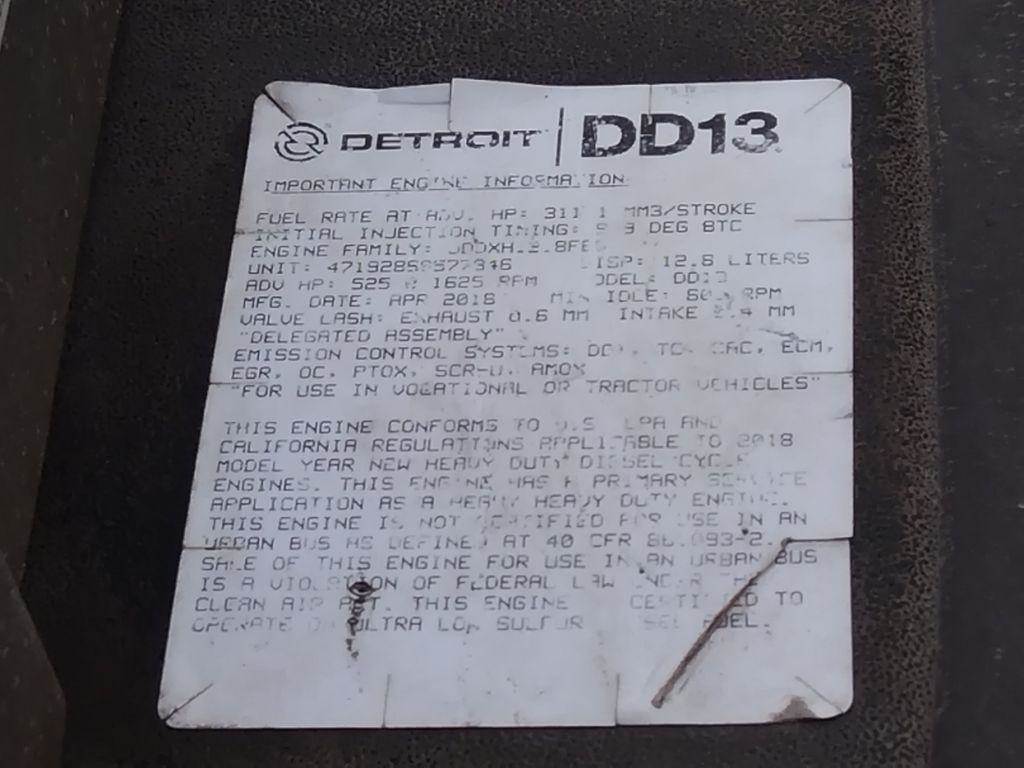 DETROIT | DD13
IMPORTANT ENGINE INFORMATION
FUEL RATE AT ADV. HP: 311 1 MM3/STROKE
INITIAL INJECTION TIMING: 9 DEG BTC
ENGINE FAMILY:
UNIT: DISP: 12.8 LITERS
ADV HP: 525 @ 1625 RPM MODEL: DD13
MFG. DATE: APR 2018 MIN IDLE: RPM
VALVE LASH: EXHAUST 0.6 MM INTAKE MM
"DELEGATED ASSEMBLY"
EMISSION CONTROL SYSTEMS: CAC, ECM,
EGR, OC, PTOX, SCR-U, AMOX
"FOR USE IN VOCATIONAL OR TRACTOR VEHICLES"
THIS ENGINE CONFORMS TO U.S EPA AND
CALIFORNIA REGULATIONS APPLICABLE TO 2018
MODEL YEAR NEW HEAVY DUTY DIESEL CYCLE
ENGINES. THIS ENGINE HAS A PRIMARY SERVICE
APPLICATION AS A HEAVY HEAVY DUTY ENGINE.
THIS ENGINE IS NOT CERTIFIED FOR USE IN AN
URBAN BUS AS DEFINED AT 40 CFR 86.093-2.
SALE OF THIS ENGINE FOR USE IN AN URBAN BUS
IS A VIOLATION OF FEDERAL LAW UNDER THE
CLEAN AIR ACT. THIS ENGINE CERTIFIED TO
OPERATE ON ULTRA LOW SULFUR DIESEL FUEL.